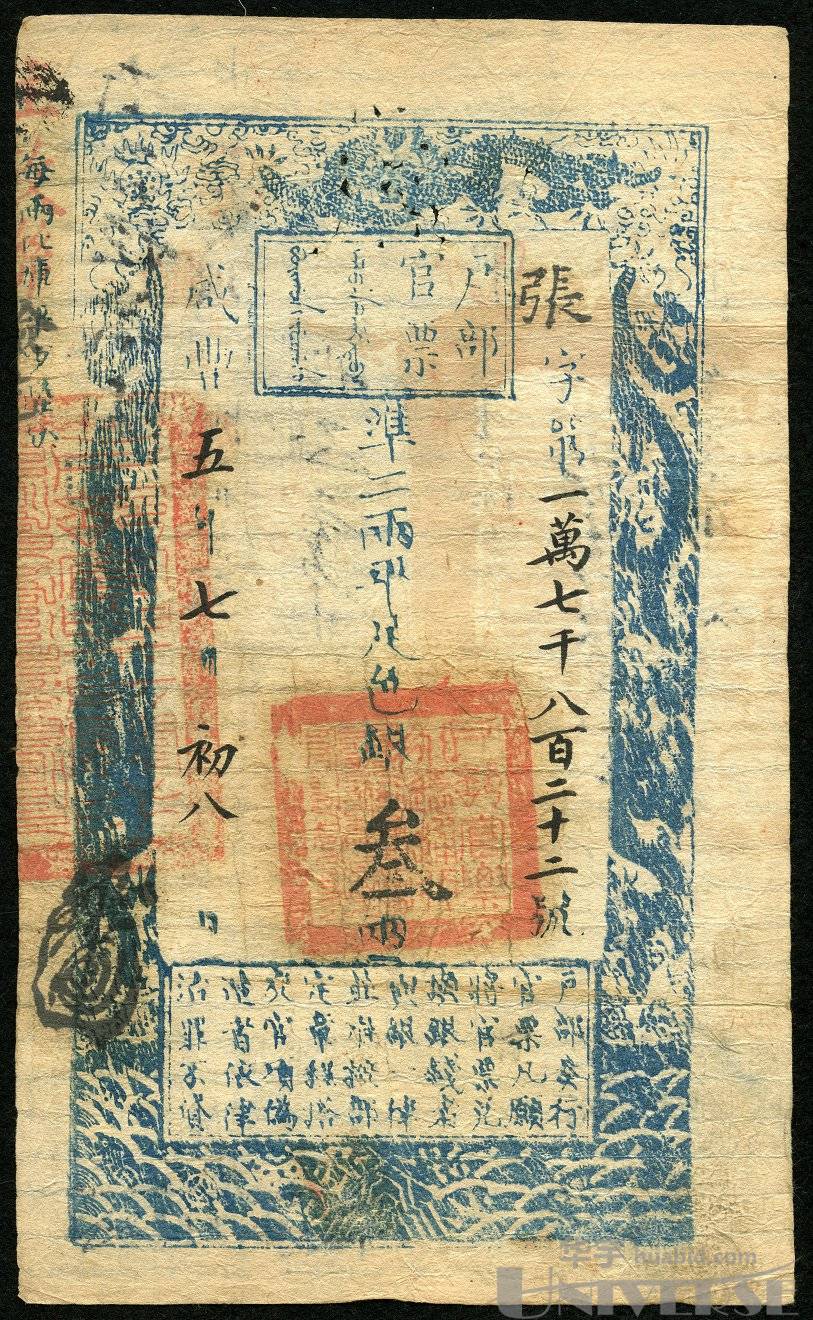 張字第一萬七千八百二十二號
戶部
官票
準二兩平足色銀叁兩
咸豐五年七月初八日
戶部奏行
官票凡願
將官票兌
換銀錢者
與銀一律
並准按部
定章程搭
交官項偽
造者依律
治罪不貸
每兩比庫平少陸分
华宇 huabid.com
UNIVERSE